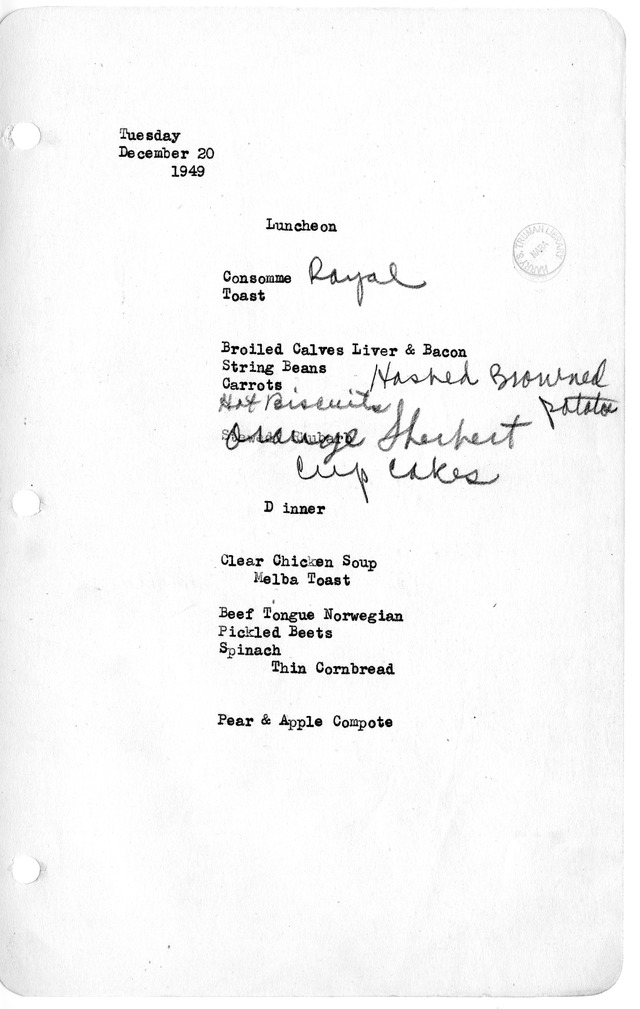 Tuesday
December 20
1949
Luncheon
HARRY S. TRUMAN LIBRARY
NARA
Consomme Royal
Toast
Broiled Calves Liver & Bacon
String Beans
Carrots Hashed Browned
Hot Biscuits potatoe
Stewed Rhubarb
Orange Sherbert
Cup Cakes
Dinner
Clear Chicken Soup
Melba Toast
Beef Tongue Norwegian
Pickled Beets
Spinach
Thin Cornbread
Pear & Apple Compote